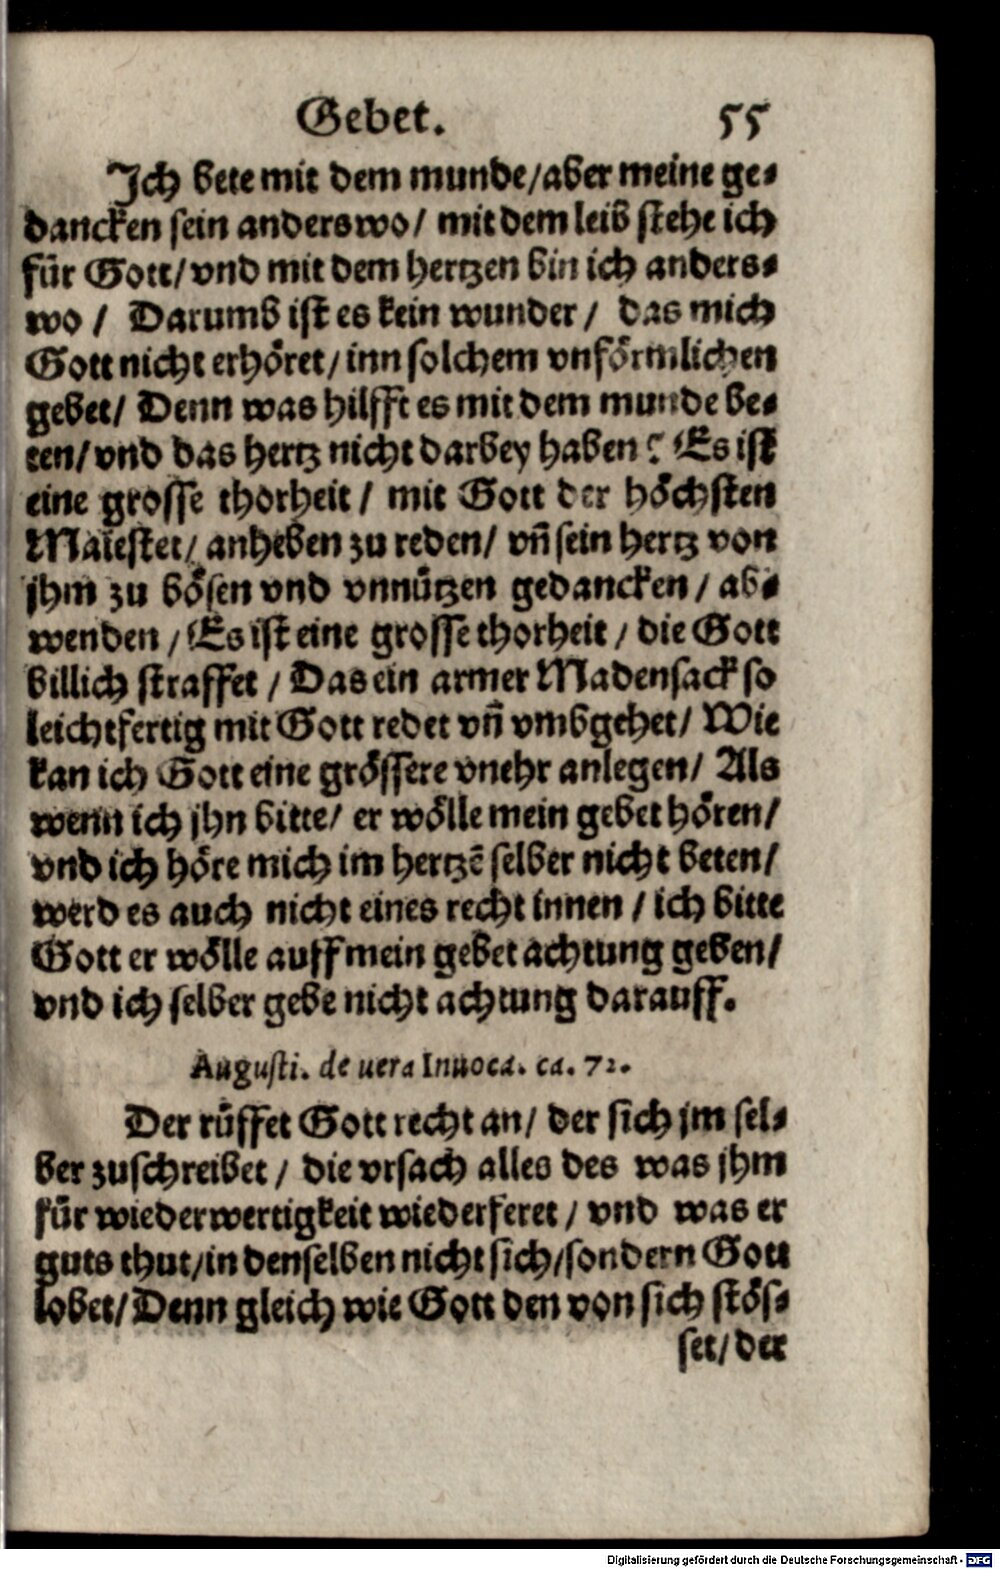 Gebet. 55
Ich bete mit dem munde/aber meine ge-
dancken sein anderswo/ mit dem leib stehe ich
für Gott/vnd mit dem hertzen bin ich anders-
wo / Darumb ist es kein wunder / das mich
Gott nicht erhöret/inn solchem vnförmlichen
gebet/ Denn was hilfft es mit dem munde be-
ten/vnd das hertz nicht darbey haben? Es ist
eine grosse thorheit / mit Gott der höchsten
Maiestet/ anheben zu reden/ vñ sein hertz von
jhm zu bösen vnd vnnützen gedancken / ab-
wenden / Es ist eine grosse thorheit / die Gott
billich straffet / Das ein armer Madensack so
leichtfertig mit Gott redet vñ vmbgehet/ Wie
kan ich Gott eine grössere vnehr anlegen/ Als
wenn ich jhn bitte/ er wölle mein gebet hören/
vnd ich höre mich im hertzẽ selber nicht beten/
werd es auch nicht eines recht innen / ich bitte
Gott er wölle auff mein gebet achtung geben/
vnd ich selber gebe nicht achtung darauff.
Augusti. de uera Inuoca. ca. 72.
Der rüffet Gott recht an/ der sich jm sel-
ber zuschreibet / die vrsach alles des was jhm
für wiederwertigkeit wiederferet / vnd was er
guts thut/in denselben nicht sich/sondern Gott
lobet/Denn gleich wie Gott den von sich stös-
set/der
Digitalisierung gefördert durch die Deutsche Forschungsgemeinschaft - DFG